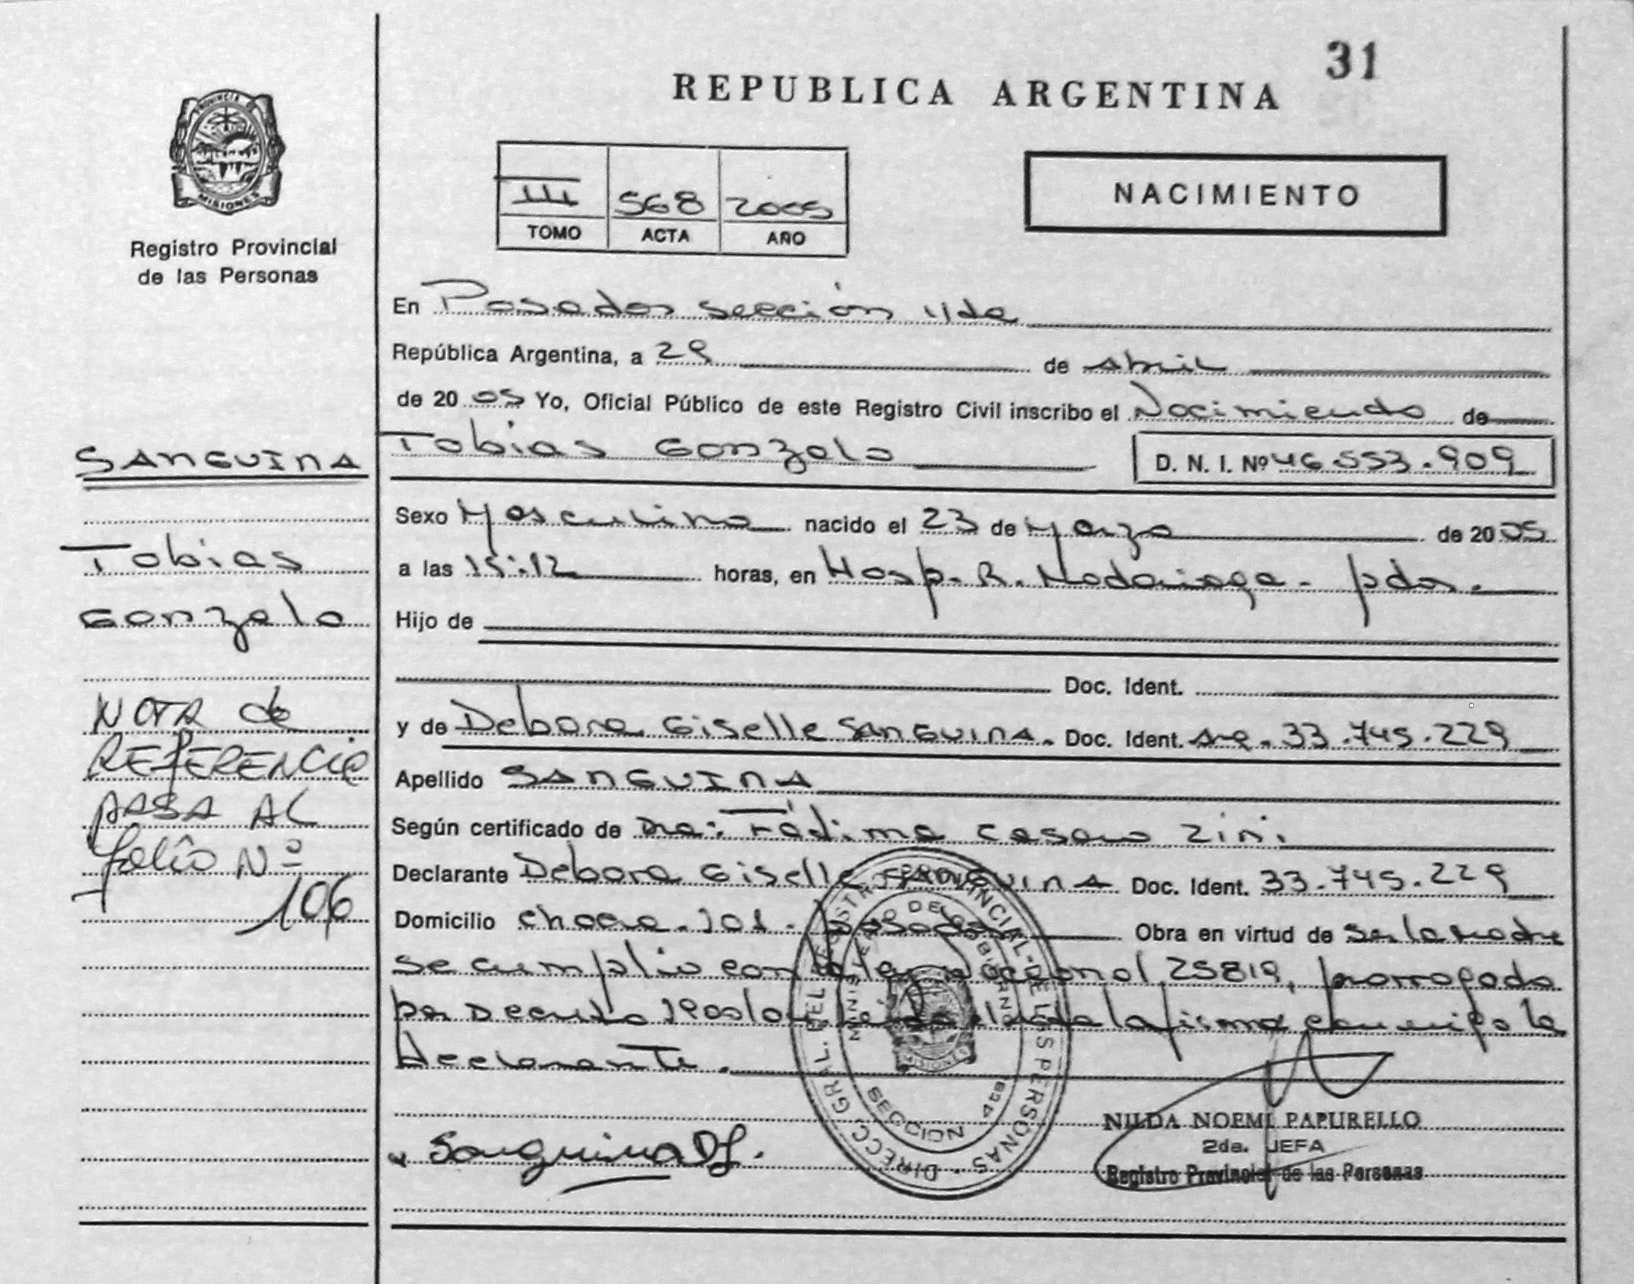 31
REPUBLICA ARGENTINA
PROVINCIA
MISIONES
Registro Provincial
de las Personas
III 568 2005
TOMO ACTA AÑO
NACIMIENTO
En Posadas sección 11da
República Argentina, a 29 de Abril
de 2005 Yo, Oficial Público de este Registro Civil inscribo el Nacimiento de
Tobias Gonzalo D. N. I. Nº 46.553.909
Sexo Masculino nacido el 23 de Marzo de 2005
a las 15:12 horas, en Hosp. R. Madariaga - pdas.
Hijo de
Doc. Ident.
y de Debora Giselle SANGUINA. Doc. Ident. Arg. 33.745.229
Apellido SANGUINA
Según certificado de Dra: Fátima Casaro Zini
Declarante Debora Giselle SANGUINA Doc. Ident. 33.745.229
Domicilio Chacra. 101. Posadas Obra en virtud de Ser la Madre
se cumplio con la ley Nacional 25819, prorrogada
por Decreto la firma conmigo la
declarante.
Sanguina DG.
DIRECC. GRAL. DEL REGISTRO PROVINCIAL DE LAS PERSONAS
MINISTERIO DE GOBIERNO
MISIONES
SECCION 4ta.
NILDA NOEMI PAPURELLO
2da. JEFA
Registro Provincial de las Personas
SANGUINA
Tobias
Gonzalo
NOTA de
REFERENCIA
PASA AL
folio Nº
106